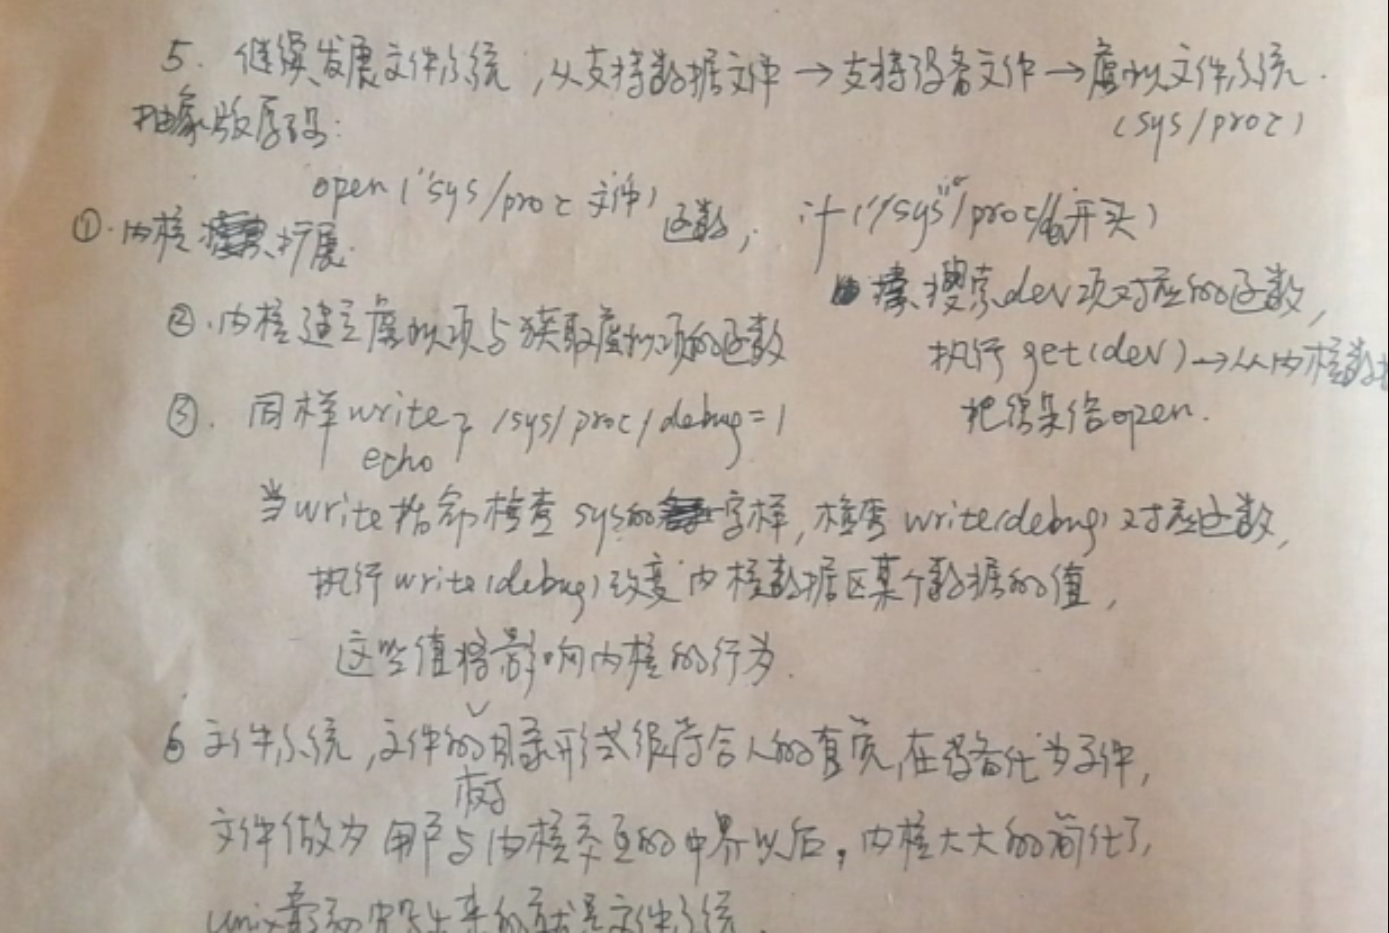 5. 继续发展文件系统，从支持数据文件→支持设备文件→虚拟文件系统.
(sys/proc)
抽象版原码:
open("sys/proc 文件)函数， if("/sys"/proc/开头)
①.内核扩展.
搜索dev项对应的函数，
②.内核建立虚拟项与获取虚拟项的函数
执行 get(dev)→从内核数据
把结果给open.
③. 同样write于 /sys/proc/debug=1
echo
当write指令检查 sys的字样，检查 write(debug)对应函数，
执行write(debug)改变内核数据区某个数据的值，
这些值将影响内核的行为.
6 文件系统，文件的目录形式很符合人的直觉，在设备化为文件，
树
文件做为用户与内核交互的中界以后，内核大大的简化了，
unix最初突出来的就是文件系统.